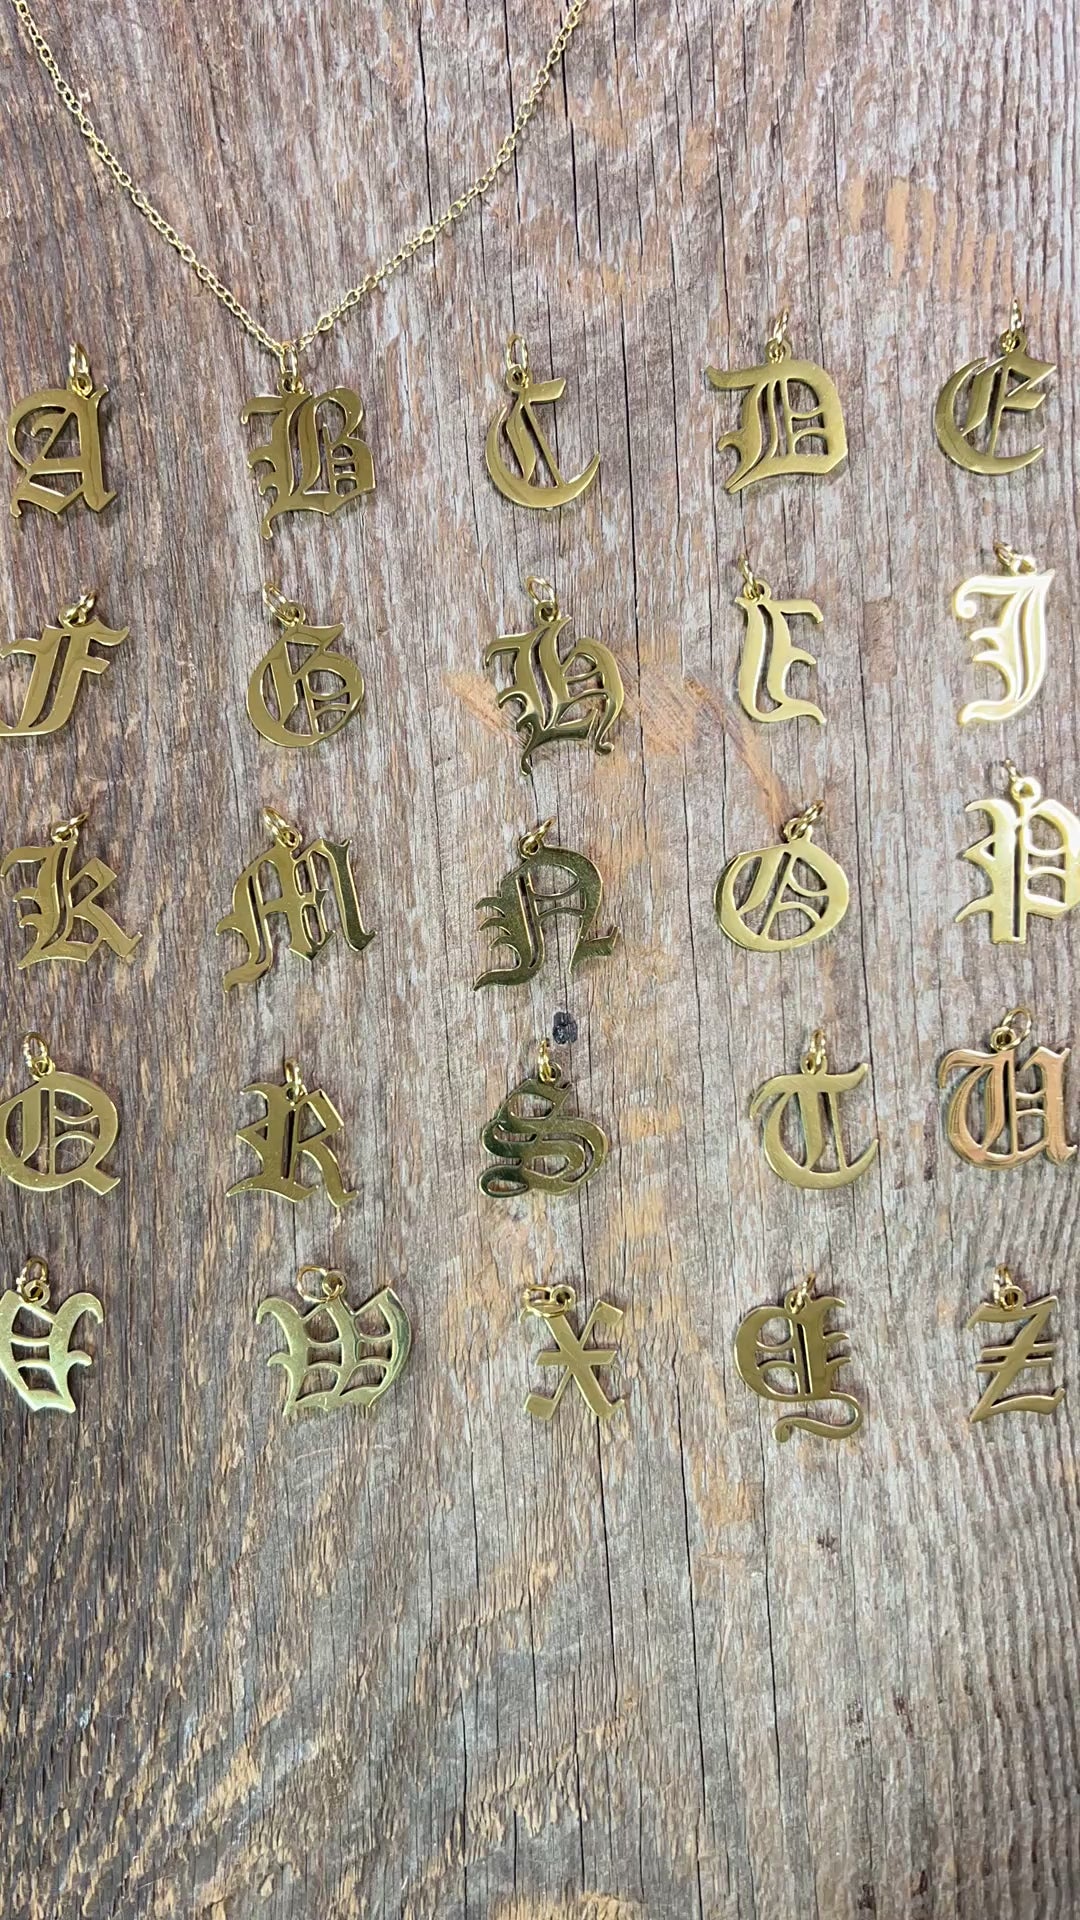 A B C D E
F G H I J
K M N O P
Q R S T U
V W X Y Z